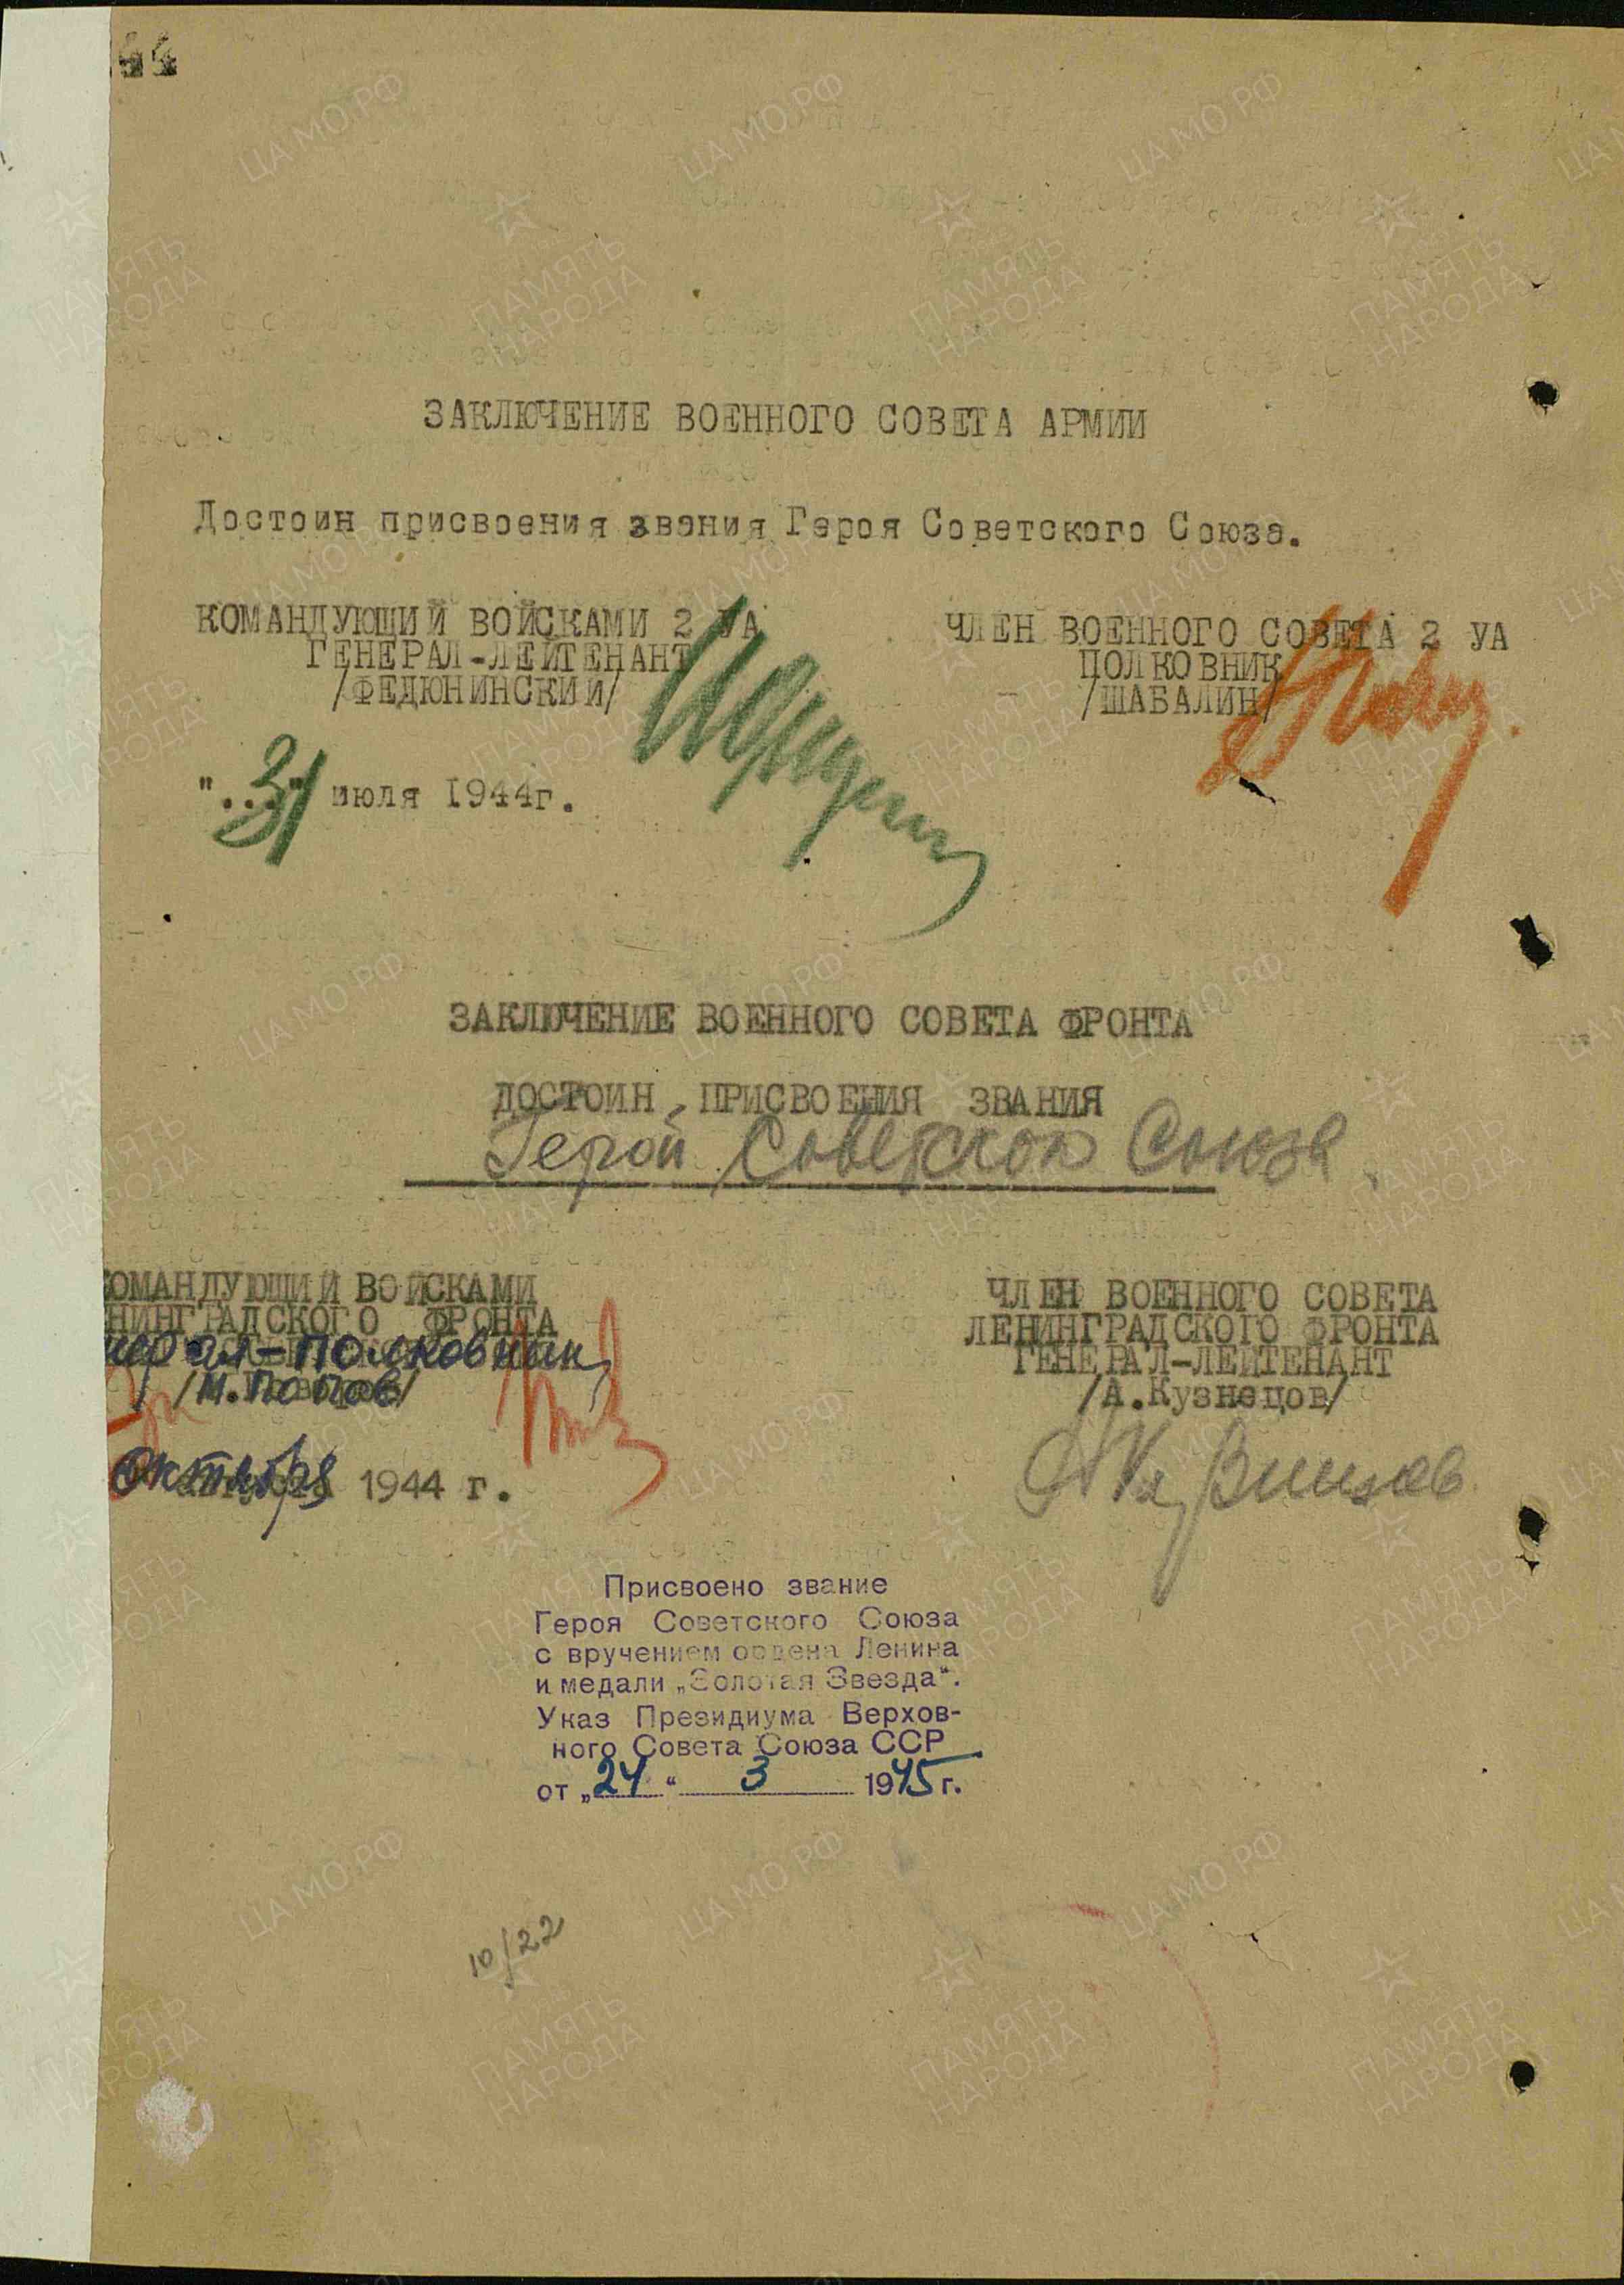 44
ЗАКЛЮЧЕНИЕ ВОЕННОГО СОВЕТА АРМИИ
Достоин присвоения звания Героя Советского Союза.
КОМАНДУЮЩИЙ ВОЙСКАМИ 2 УА
ГЕНЕРАЛ-ЛЕЙТЕНАНТ
/ФЕДЮНИНСКИЙ/
ЧЛЕН ВОЕННОГО СОВЕТА 2 УА
ПОЛКОВНИК
/ШАБАЛИН/
"31" июля 1944г.
ЗАКЛЮЧЕНИЕ ВОЕННОГО СОВЕТА ФРОНТА
ДОСТОИН ПРИСВОЕНИЯ ЗВАНИЯ
Герой Советского Союза
ОМАНДУЮЩИЙ ВОЙСКАМИ
НИНГРАДСКОГО ФРОНТА
нерал-полковник
/М.Попов/
октября 1944 г.
ЧЛЕН ВОЕННОГО СОВЕТА
ЛЕНИНГРАДСКОГО ФРОНТА
ГЕНЕРАЛ-ЛЕЙТЕНАНТ
/А.Кузнецов/
Присвоено звание
Героя Советского Союза
с вручением ордена Ленина
и медали „Золотая Звезда“.
Указ Президиума Верхов-
ного Совета Союза ССР
от „24“ 3 1945 г.
10/22
ЦА МО РФ
ПАМЯТЬ
НАРОДА